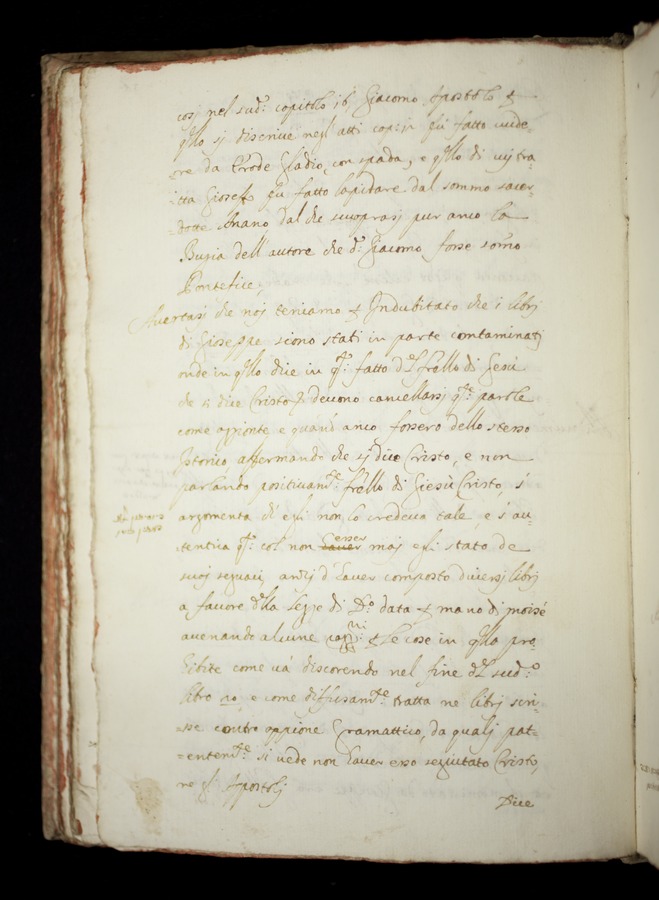 così nel sud.º capitolo 16 Giacomo Apostolo &
qllo si discrive negli atti cap. fù fatto ucide
re da Erode Gladio, con spada, e qllo di cuj tra
=tta Giosef fù fatto lapidare dal sommo sacer
=dotte Anano dal che scuoprasj pur anco la
Bugia dell'autore che d.º Giacomo forse som̃o
Pontefice,
Avertasi che noj teniamo & Indubitato che i librj
di Gioseppe siono stati in parte contaminatj
onde in qllo dice in q.º fatto dl frello di Gesù
che si dice Cristo devono cancellarsj q.te parole
come agionte, e quand'anco fossero dello stesso
Istorico, affermando che si dice Cristo, e non
parlando positivam.te frello di Giesù Cristo, s'
argomenta ch'egli non lo credeva tale, e s'au-
=tentica q.º col non haver esser maj egli stato de
suoj seguaci, anzi d'haver composto diversj librj
a favore dlla legge di D.º data & mano di moisè
avenando alcune & le cose in qlla pro
hibite come và discorendo nel fine dl sud.º
libro 20, e come diffusam.te tratta ne librj scri-
=sse contro appione Gramattico, da qualj pat-
=entem.te si vede non haver esso seguitato Cristo,
ne gl'Apostolj
Dice